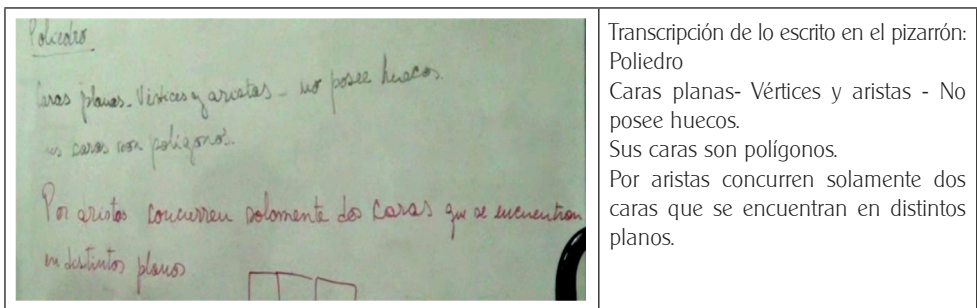 Poliedro
Caras planas - Vértices y aristas - no posee huecos.
us caras son polígonos.
Por aristas concurren solamente dos caras que se encuentran
en distintos planos
Transcripción de lo escrito en el pizarrón:
Poliedro
Caras planas- Vértices y aristas - No
posee huecos.
Sus caras son polígonos.
Por aristas concurren solamente dos
caras que se encuentran en distintos
planos.